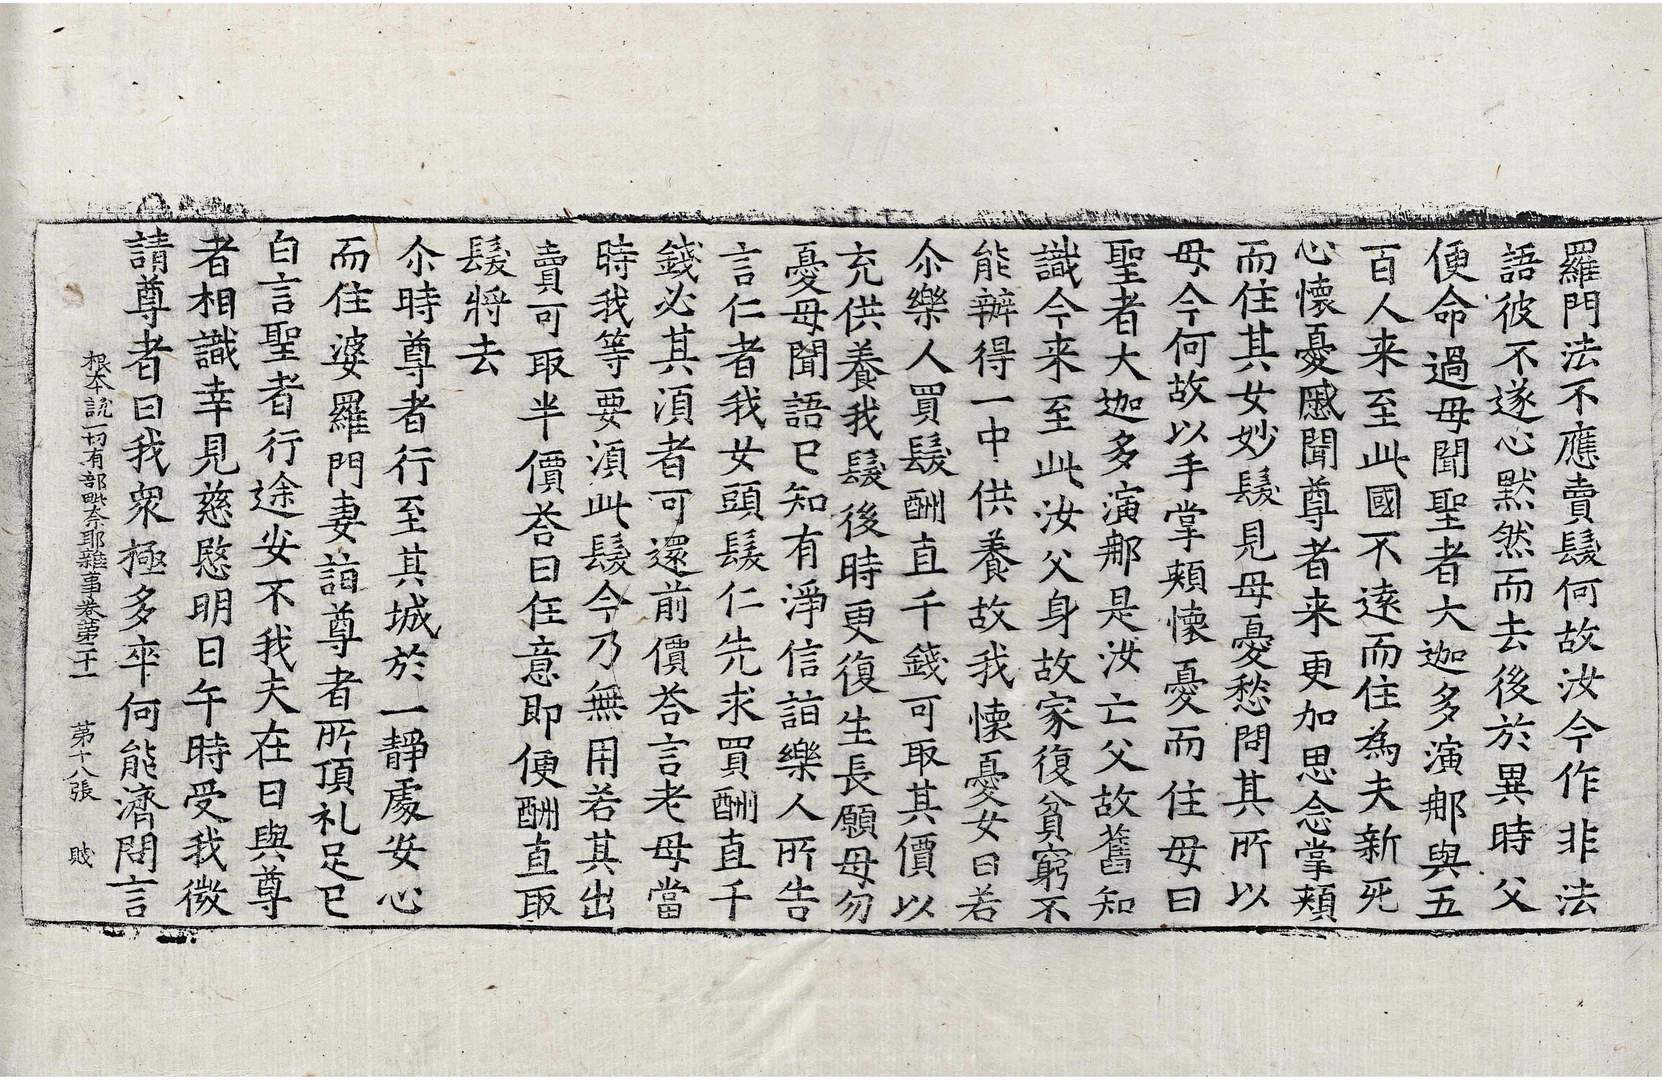 羅門法不應賣髮何故汝今作非法
語彼不遂心默然而去後於異時父
便命過母聞聖者大迦多演那與五
百人来至此國不遠而住為夫新死
心懷憂慼聞尊者来更加思念掌頰
而住其女妙髮見母憂愁問其所以
母今何故以手掌頰懷憂而住母曰
聖者大迦多演那是汝亡父故舊知
識今来至此汝父身故家復貧窮不
能辦得一中供養故我懷憂女曰若
尒樂人買髮酬直千錢可取其價以
充供養我髮後時更復生長願母勿
憂母聞語已知有淨信詣樂人所告
言仁者我女頭髮仁先求買酬直千
錢必其湏者可還前價荅言老母當
時我等要湏此髮今乃無用若其出
賣可取半價荅曰任意即便酬直取
髮將去
尒時尊者行至其城於一靜處安心
而住婆羅門妻詣尊者所頂礼足已
白言聖者行途安不我夫在日與尊
者相識幸見慈愍明日午時受我微
請尊者曰我衆極多卒何能濟問言
根本說一切有部毗奈耶雜事卷第二十一　第十八張　賤